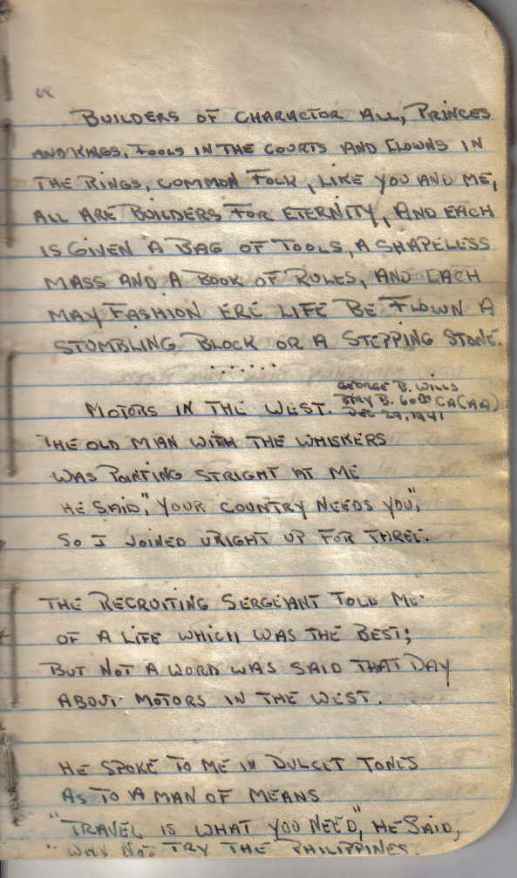 BUILDERS OF CHARACTOR ALL, PRINCES
AND KINGS, FOOLS IN THE COURTS AND CLOWNS IN
THE RINGS, COMMON FOLK, LIKE YOU AND ME,
ALL ARE BUILDERS FOR ETERNITY, AND EACH
IS GIVEN A BAG OF TOOLS, A SHAPELESS
MASS AND A BOOK OF RULES, AND EACH
MAY FASHION ERE LIFE BE FLOWN A
STUMBLING BLOCK OR A STEPPING STONE.
......
GEORGE B. WILLS
BTRY B. 60th CA(AA)
DEC 29, 1941
MOTORS IN THE WEST.
THE OLD MAN WITH THE WHISKERS
WAS POINTING STRIGHT AT ME
HE SAID, "YOUR COUNTRY NEEDS YOU",
SO I JOINED URIGHT UP FOR THREE.
THE RECRUITING SERGEANT TOLD ME
OF A LIFE WHICH WAS THE BEST;
BUT NOT A WORD WAS SAID THAT DAY
ABOUT MOTORS IN THE WEST.
HE SPOKE TO ME IN DULCET TONES
AS TO A MAN OF MEANS
"TRAVEL IS WHAT YOU NEED," HE SAID,
"WHY NOT TRY THE PHILIPPINES.